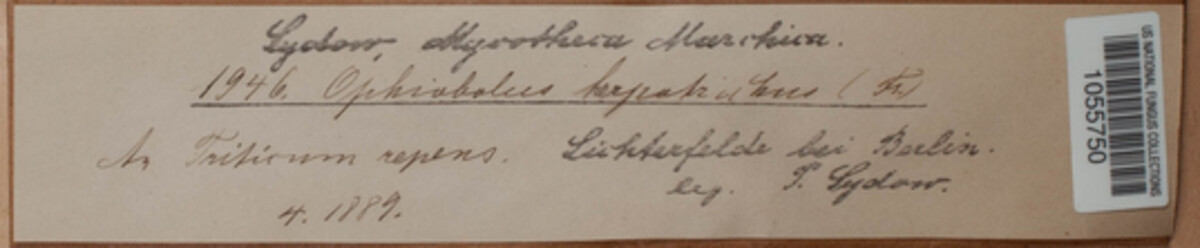 Sydow, Mycotheca Marchica.
1946. Ophiobolus herpotrichus (Fr)
An Triticum repens. Lichterfelde bei Berlin.
4. 1889. leg. P. Sydow.
US NATIONAL FUNGUS COLLECTIONS
1055750